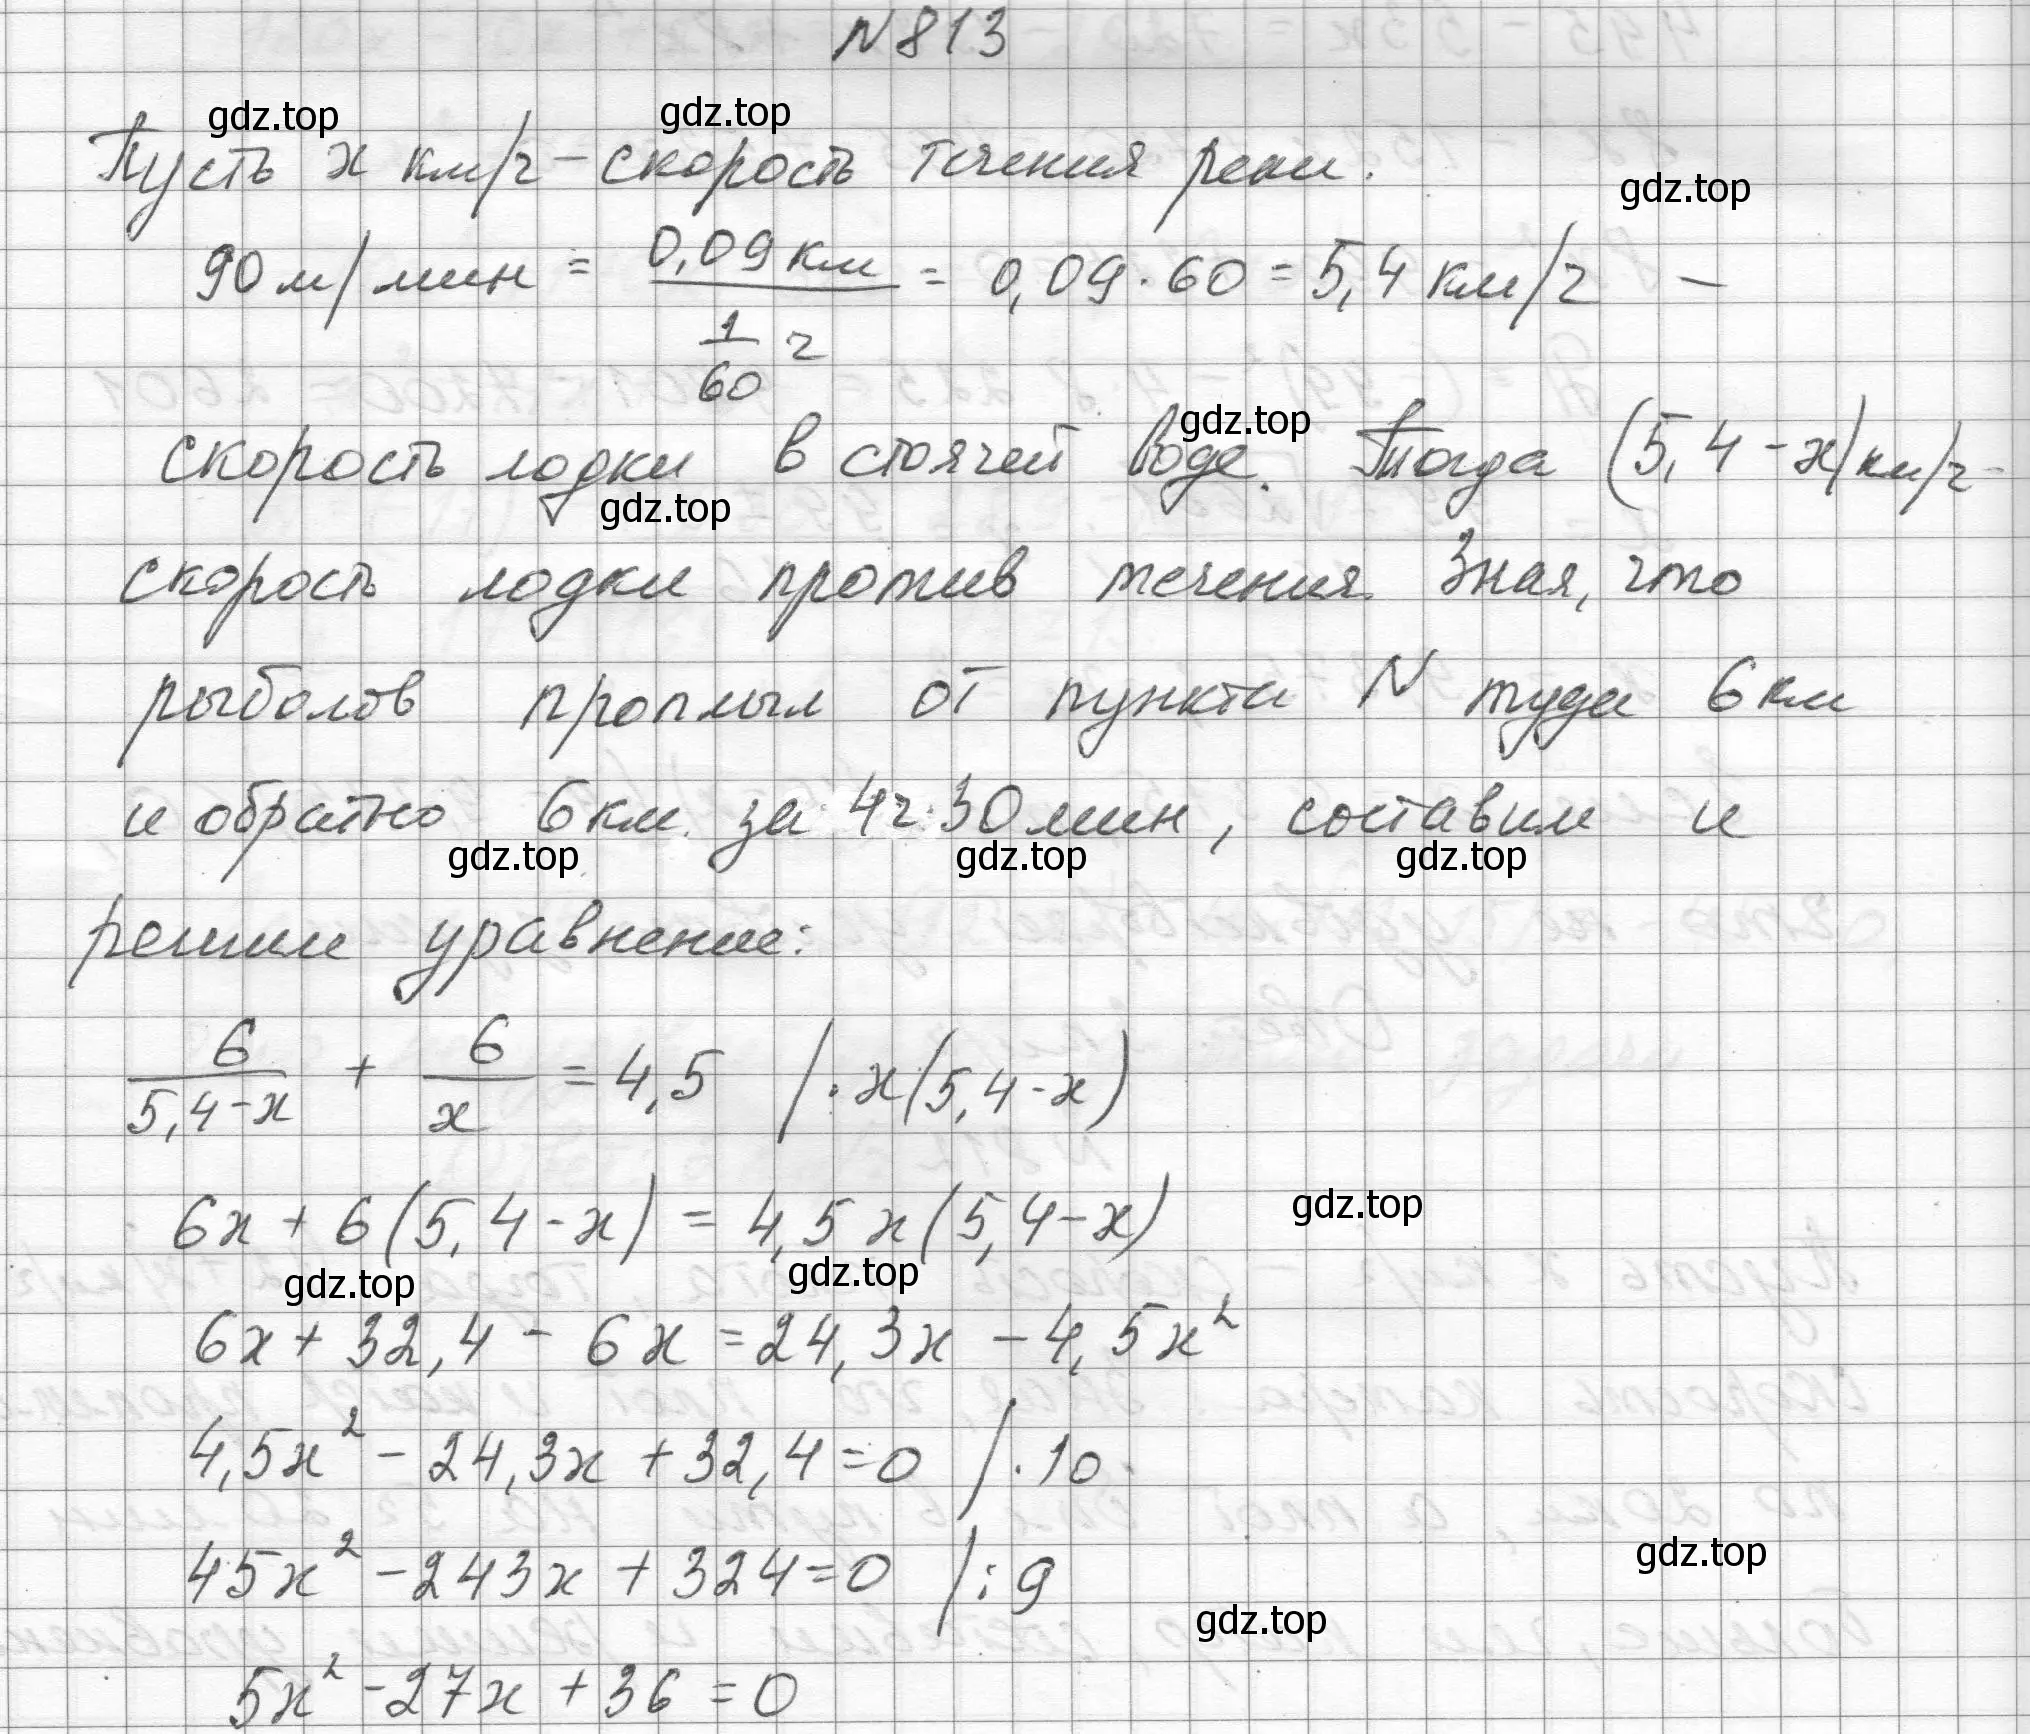 N 813
gdz.top gdz.top
Пусть x км/ч – скорость течения реки.
gdz.top
90 м/мин = 0,09 км / 1/60 ч = 0,09 · 60 = 5,4 км/ч –
gdz.top
скорость лодки в стоячей воде. Тогда (5,4 - x) км/ч -
gdz.top
скорость лодки против течения. Зная, что
рыболов проплыл от пункта N туда 6 км
и обратно 6 км за 4 ч 30 мин, составим и
gdz.top gdz.top gdz.top
решим уравнение:
6/(5,4-x) + 6/x = 4,5 | · x(5,4-x)
gdz.top
6x + 6(5,4-x) = 4,5x(5,4-x)
gdz.top gdz.top
6x + 32,4 - 6x = 24,3x - 4,5x²
4,5x² - 24,3x + 32,4 = 0 | · 10
45x² - 243x + 324 = 0 | : 9
gdz.top
gdz.top
5x² - 27x + 36 = 0